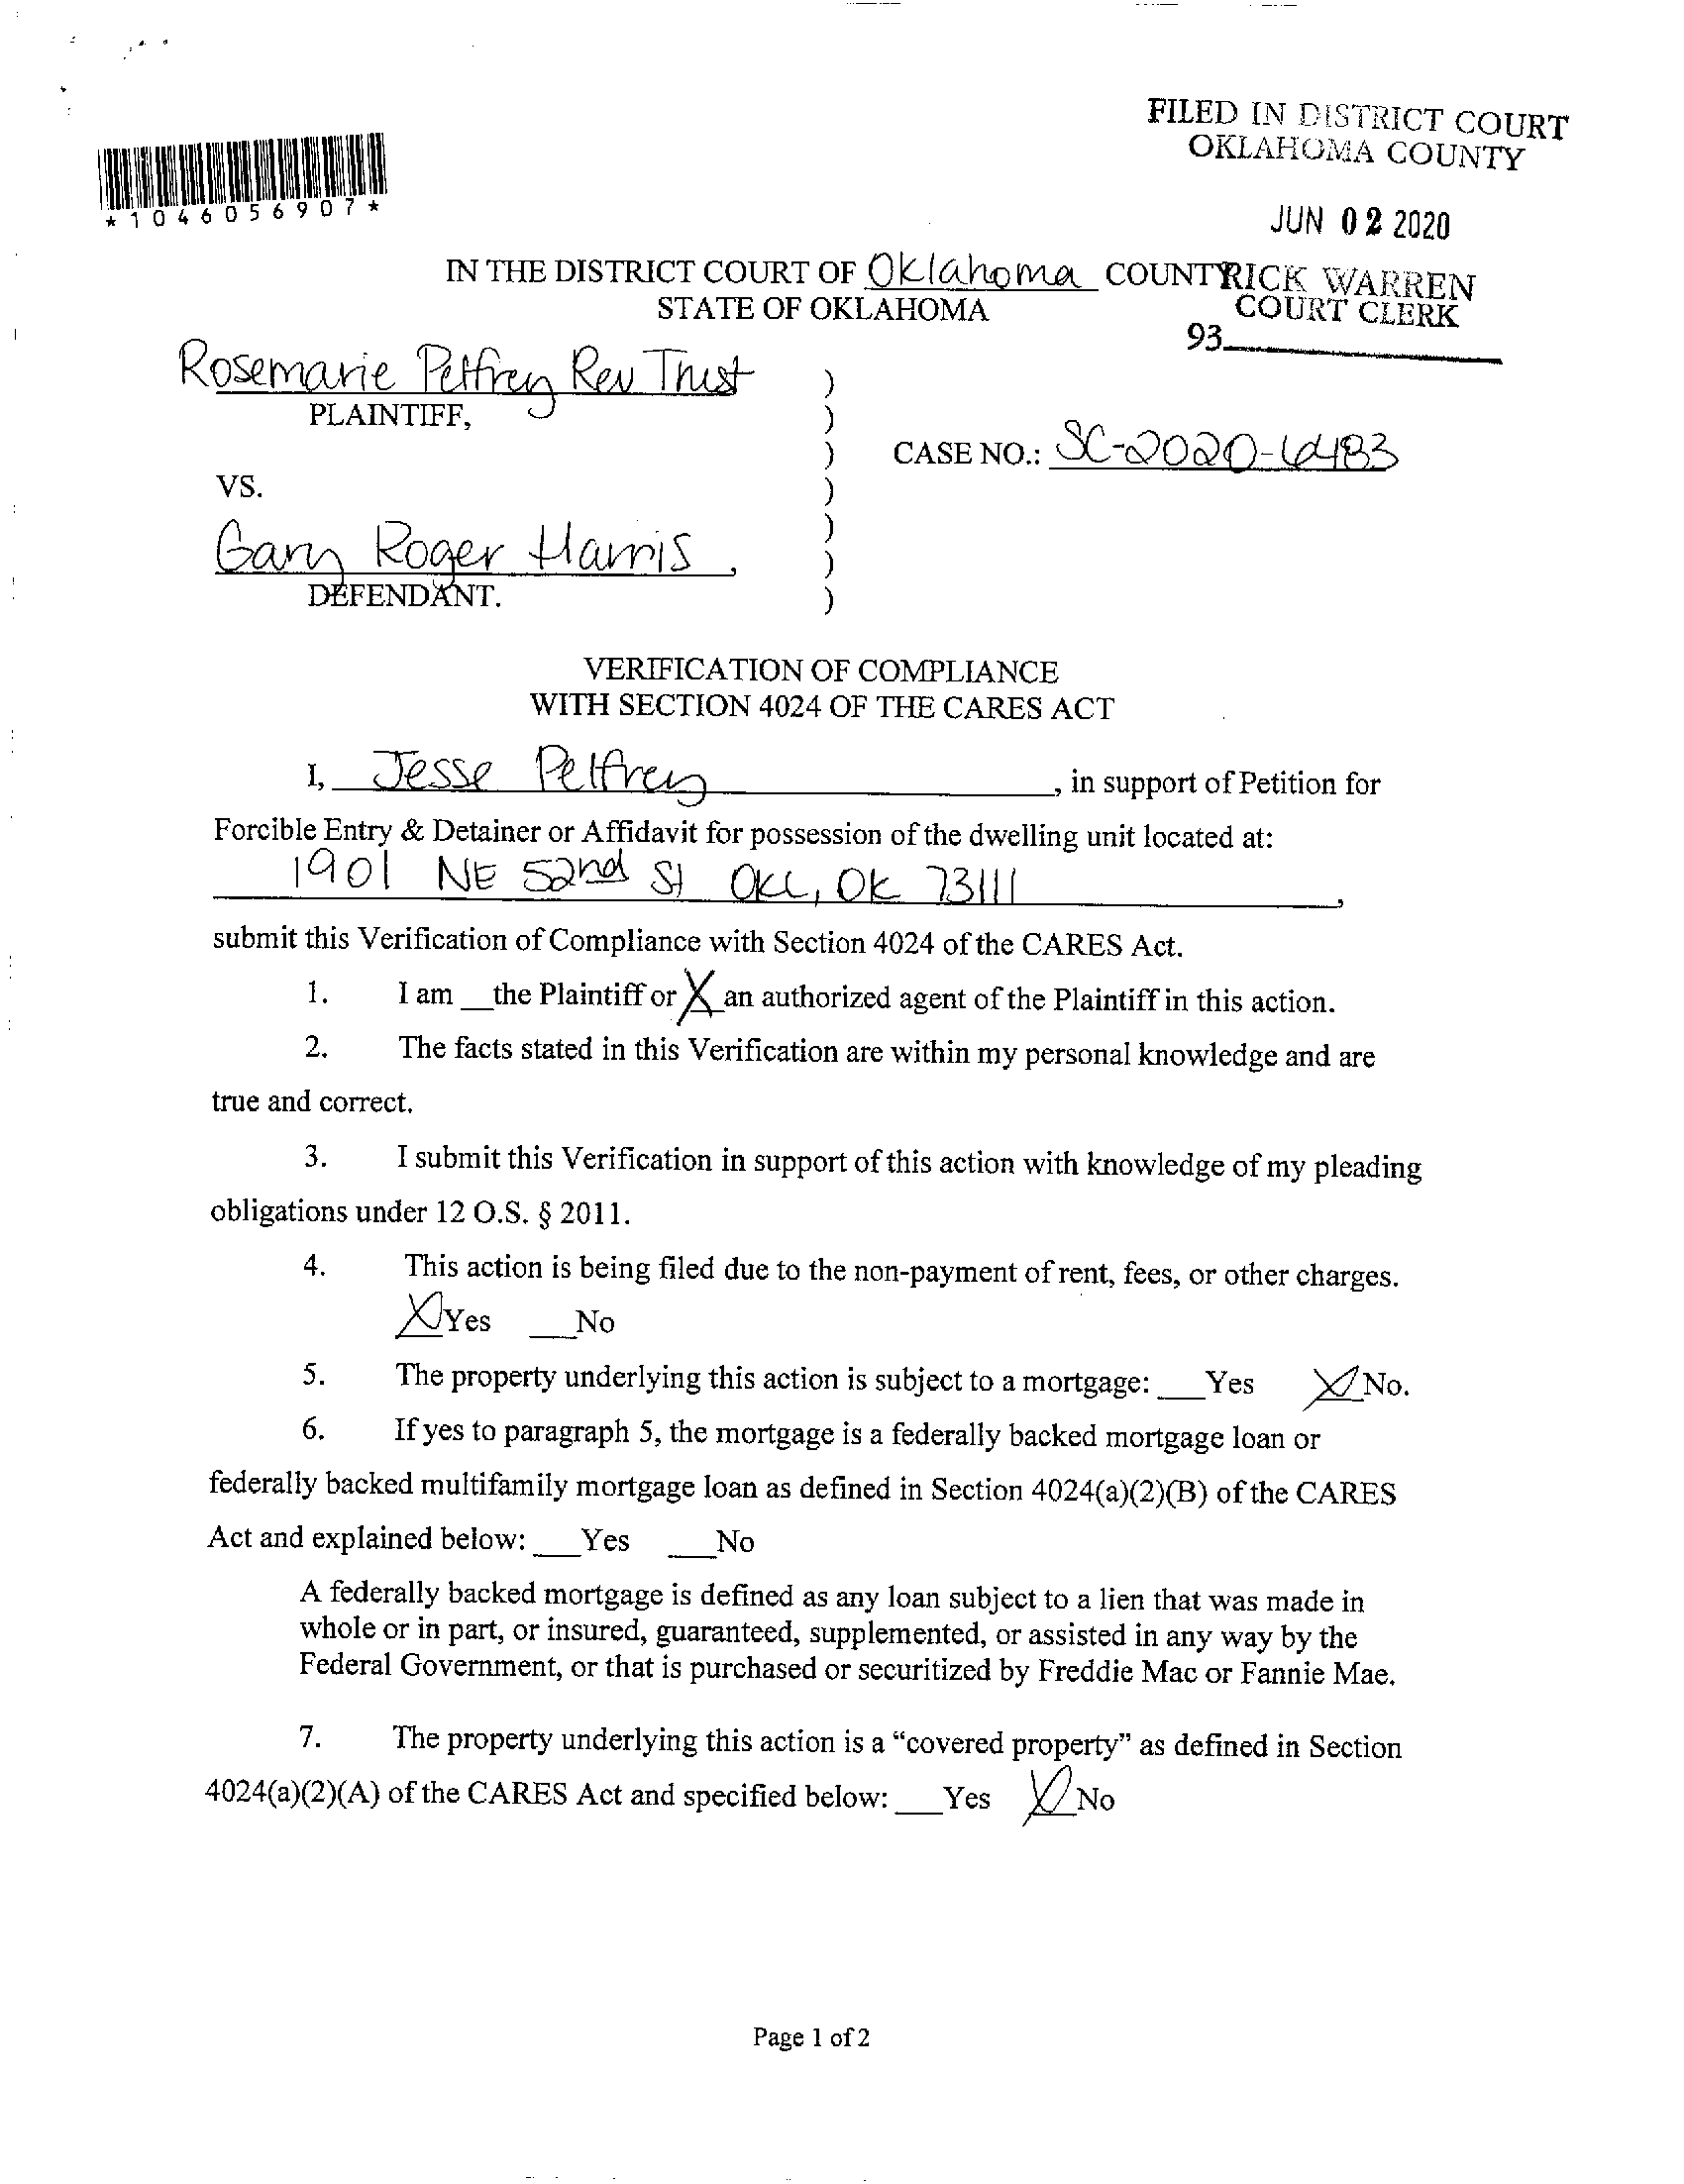 FILED IN DISTRICT COURT
OKLAHOMA COUNTY
*1046056907*
JUN 02 2020
IN THE DISTRICT COURT OF Oklahoma COUNTY
RICK WARREN
STATE OF OKLAHOMA
COURT CLERK
93
Rosemarie Pelfrey Rev Trust )
PLAINTIFF, )
) CASE NO.: SC-2020-6483
VS. )
)
Gary Roger Harris, )
DEFENDANT. )
VERIFICATION OF COMPLIANCE
WITH SECTION 4024 OF THE CARES ACT
I, Jesse Pelfrey, in support of Petition for
Forcible Entry & Detainer or Affidavit for possession of the dwelling unit located at:
1901 NE 52nd St OKC, OK 73111,
submit this Verification of Compliance with Section 4024 of the CARES Act.
1. I am __the Plaintiff or X an authorized agent of the Plaintiff in this action.
2. The facts stated in this Verification are within my personal knowledge and are
true and correct.
3. I submit this Verification in support of this action with knowledge of my pleading
obligations under 12 O.S. § 2011.
4. This action is being filed due to the non-payment of rent, fees, or other charges.
X Yes ___No
5. The property underlying this action is subject to a mortgage: ___Yes X No.
6. If yes to paragraph 5, the mortgage is a federally backed mortgage loan or
federally backed multifamily mortgage loan as defined in Section 4024(a)(2)(B) of the CARES
Act and explained below: ___Yes ___No
A federally backed mortgage is defined as any loan subject to a lien that was made in
whole or in part, or insured, guaranteed, supplemented, or assisted in any way by the
Federal Government, or that is purchased or securitized by Freddie Mac or Fannie Mae.
7. The property underlying this action is a “covered property” as defined in Section
4024(a)(2)(A) of the CARES Act and specified below: ___Yes X No
Page 1 of 2